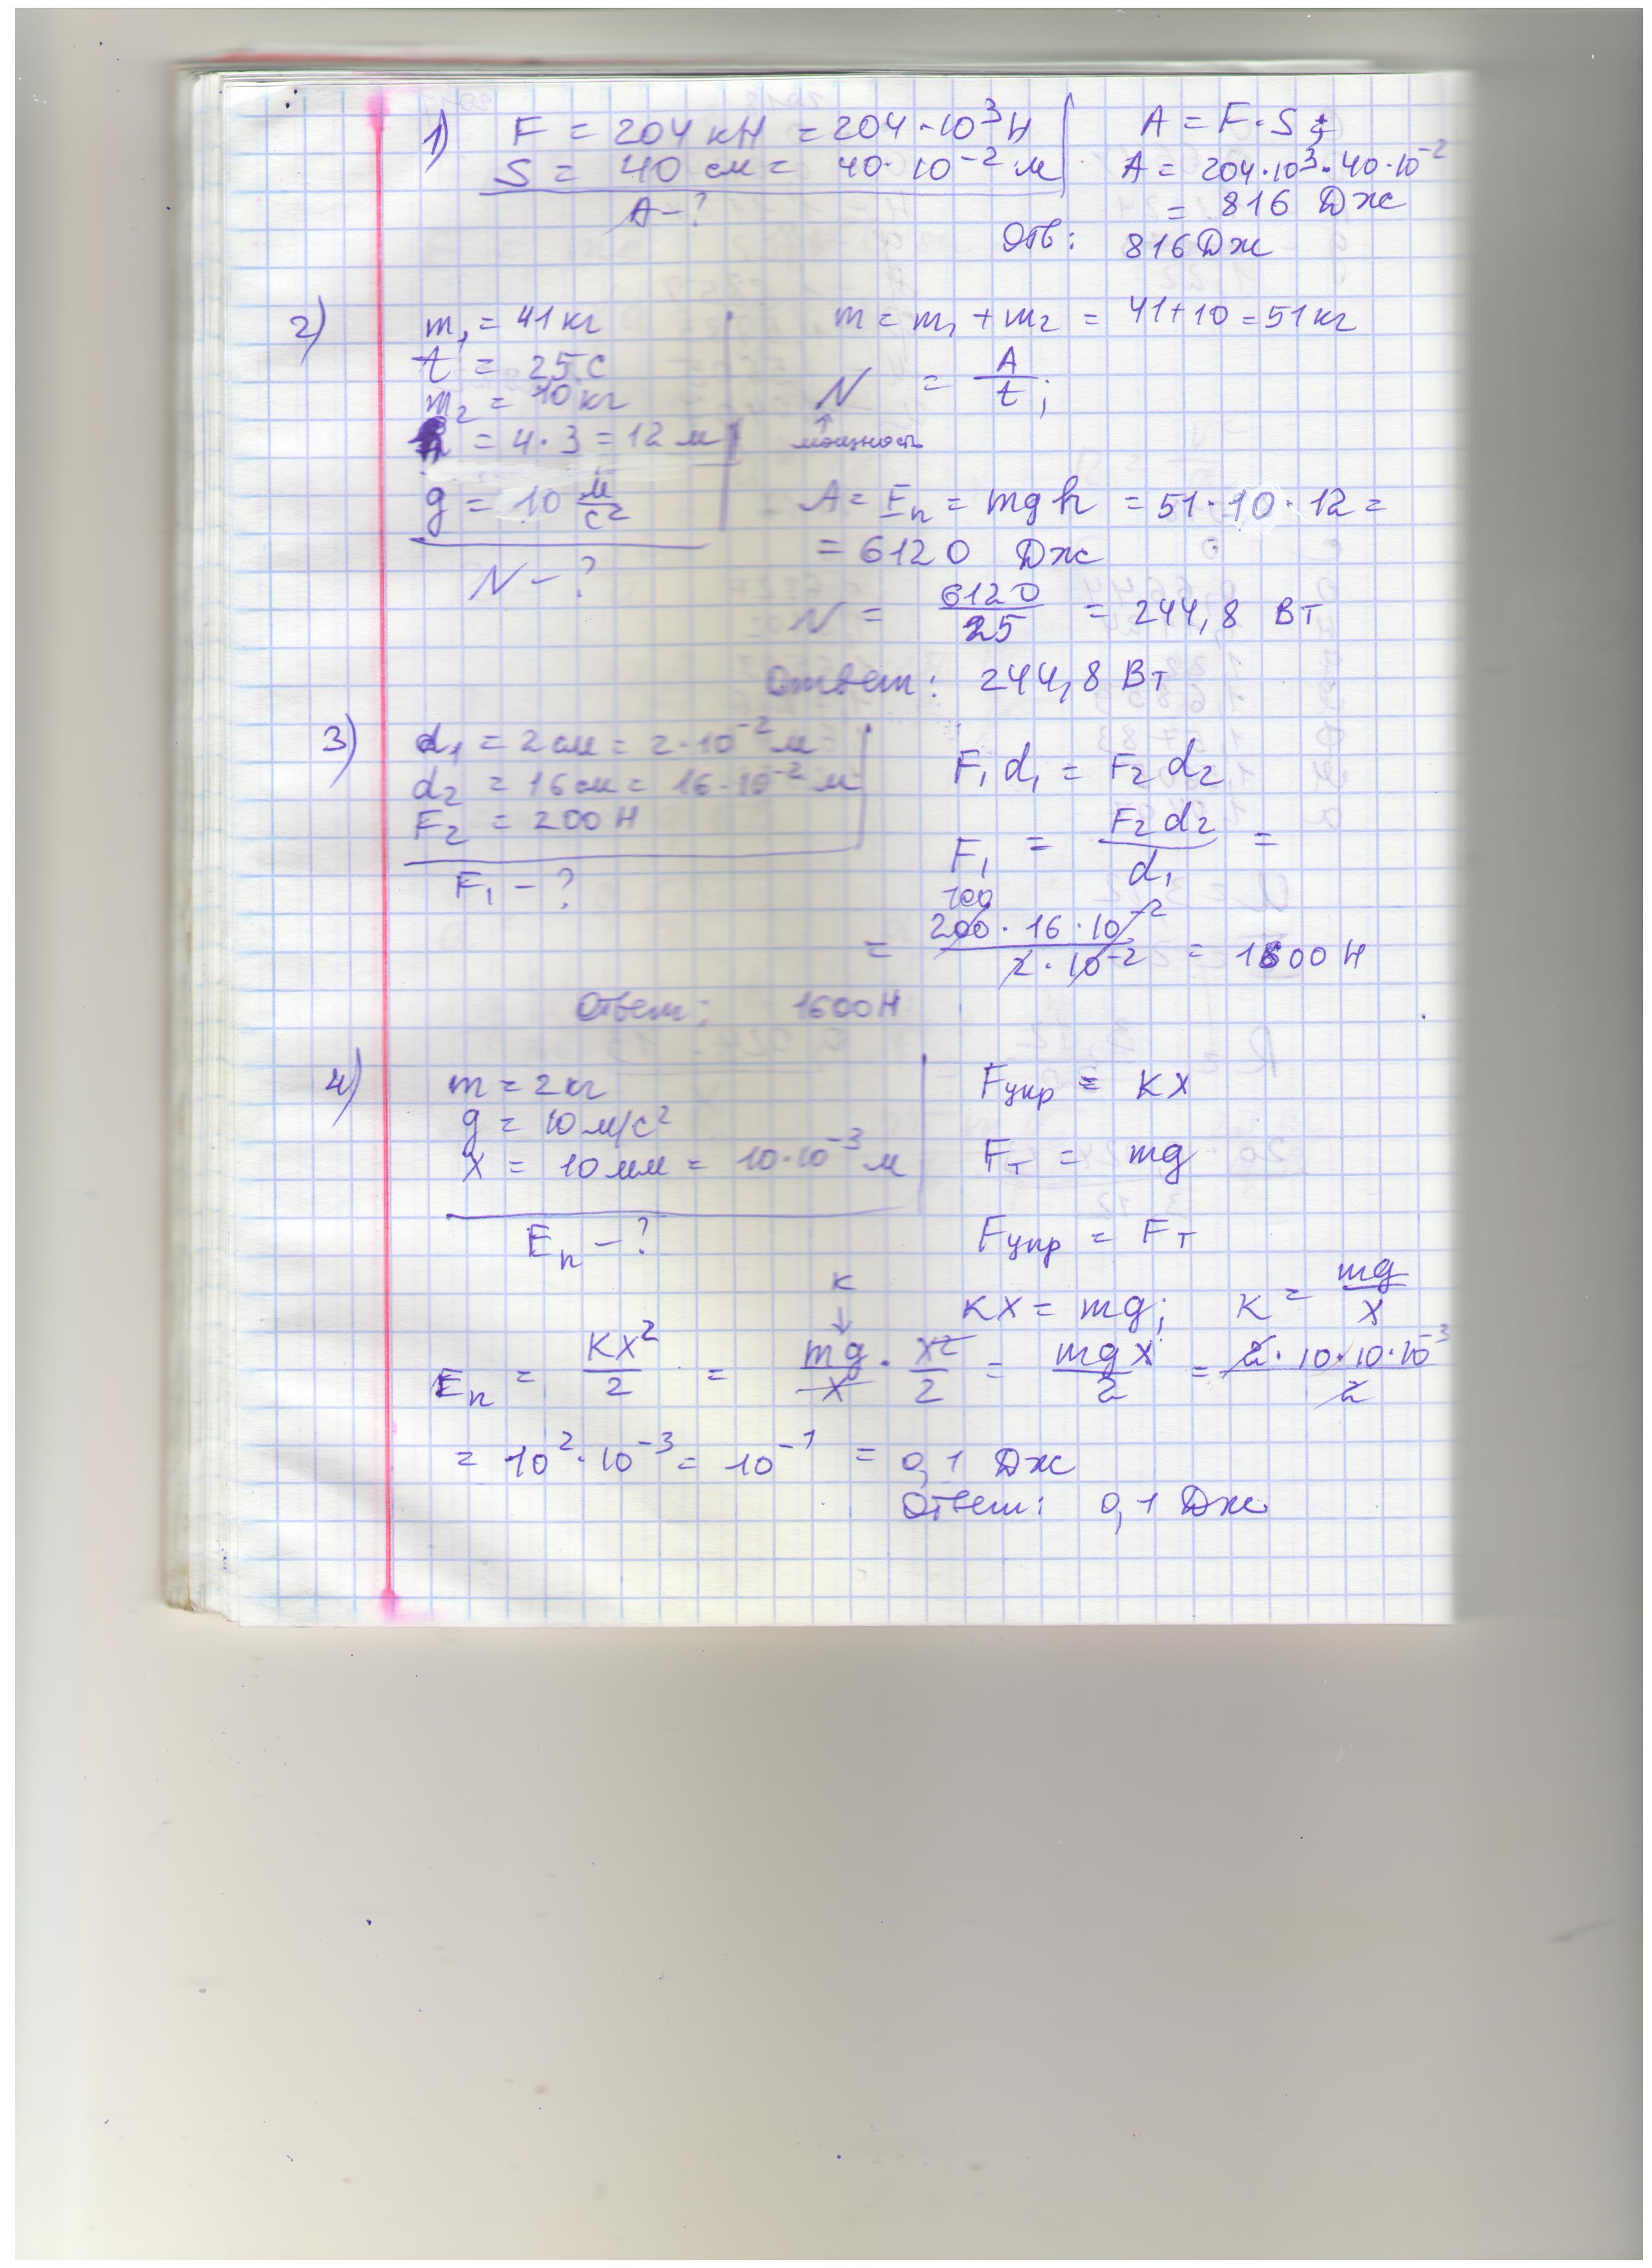 1) F = 204 кН = 204·10³Н
S = 40 см = 40·10⁻² м
A – ?
A = F·S;
A = 204·10³·40·10⁻²
= 816 Дж
Отв: 816 Дж
2) m₁ = 41 кг
t = 25 с
m₂ = 10 кг
h = 4·3 = 12 м
g = 10 м/с²
N – ?
m = m₁ + m₂ = 41+10 = 51 кг
N = A/t;
мощность
A = Eп = mgh = 51·10·12 =
= 6120 Дж
N = 6120/25 = 244,8 Вт
Ответ: 244,8 Вт
3) d₁ = 2 см = 2·10⁻² м
d₂ = 16 см = 16·10⁻² м
F₂ = 200 Н
F₁ – ?
F₁d₁ = F₂d₂
F₁ = F₂d₂/d₁ =
100
= 200·16·10⁻²/2·10⁻² = 1600 Н
Ответ: 1600 Н
4) m = 2 кг
g = 10 м/с²
x = 10 мм = 10·10⁻³ м
Eп – ?
Fупр = Kx
Fт = mg
Fупр = Fт
Kx = mg; K = mg/x
K
Eп = Kx²/2 = mg/x · x²/2 = mgx/2 = 2·10·10·10⁻³/2
= 10²·10⁻³ = 10⁻¹ = 0,1 Дж
Ответ: 0,1 Дж